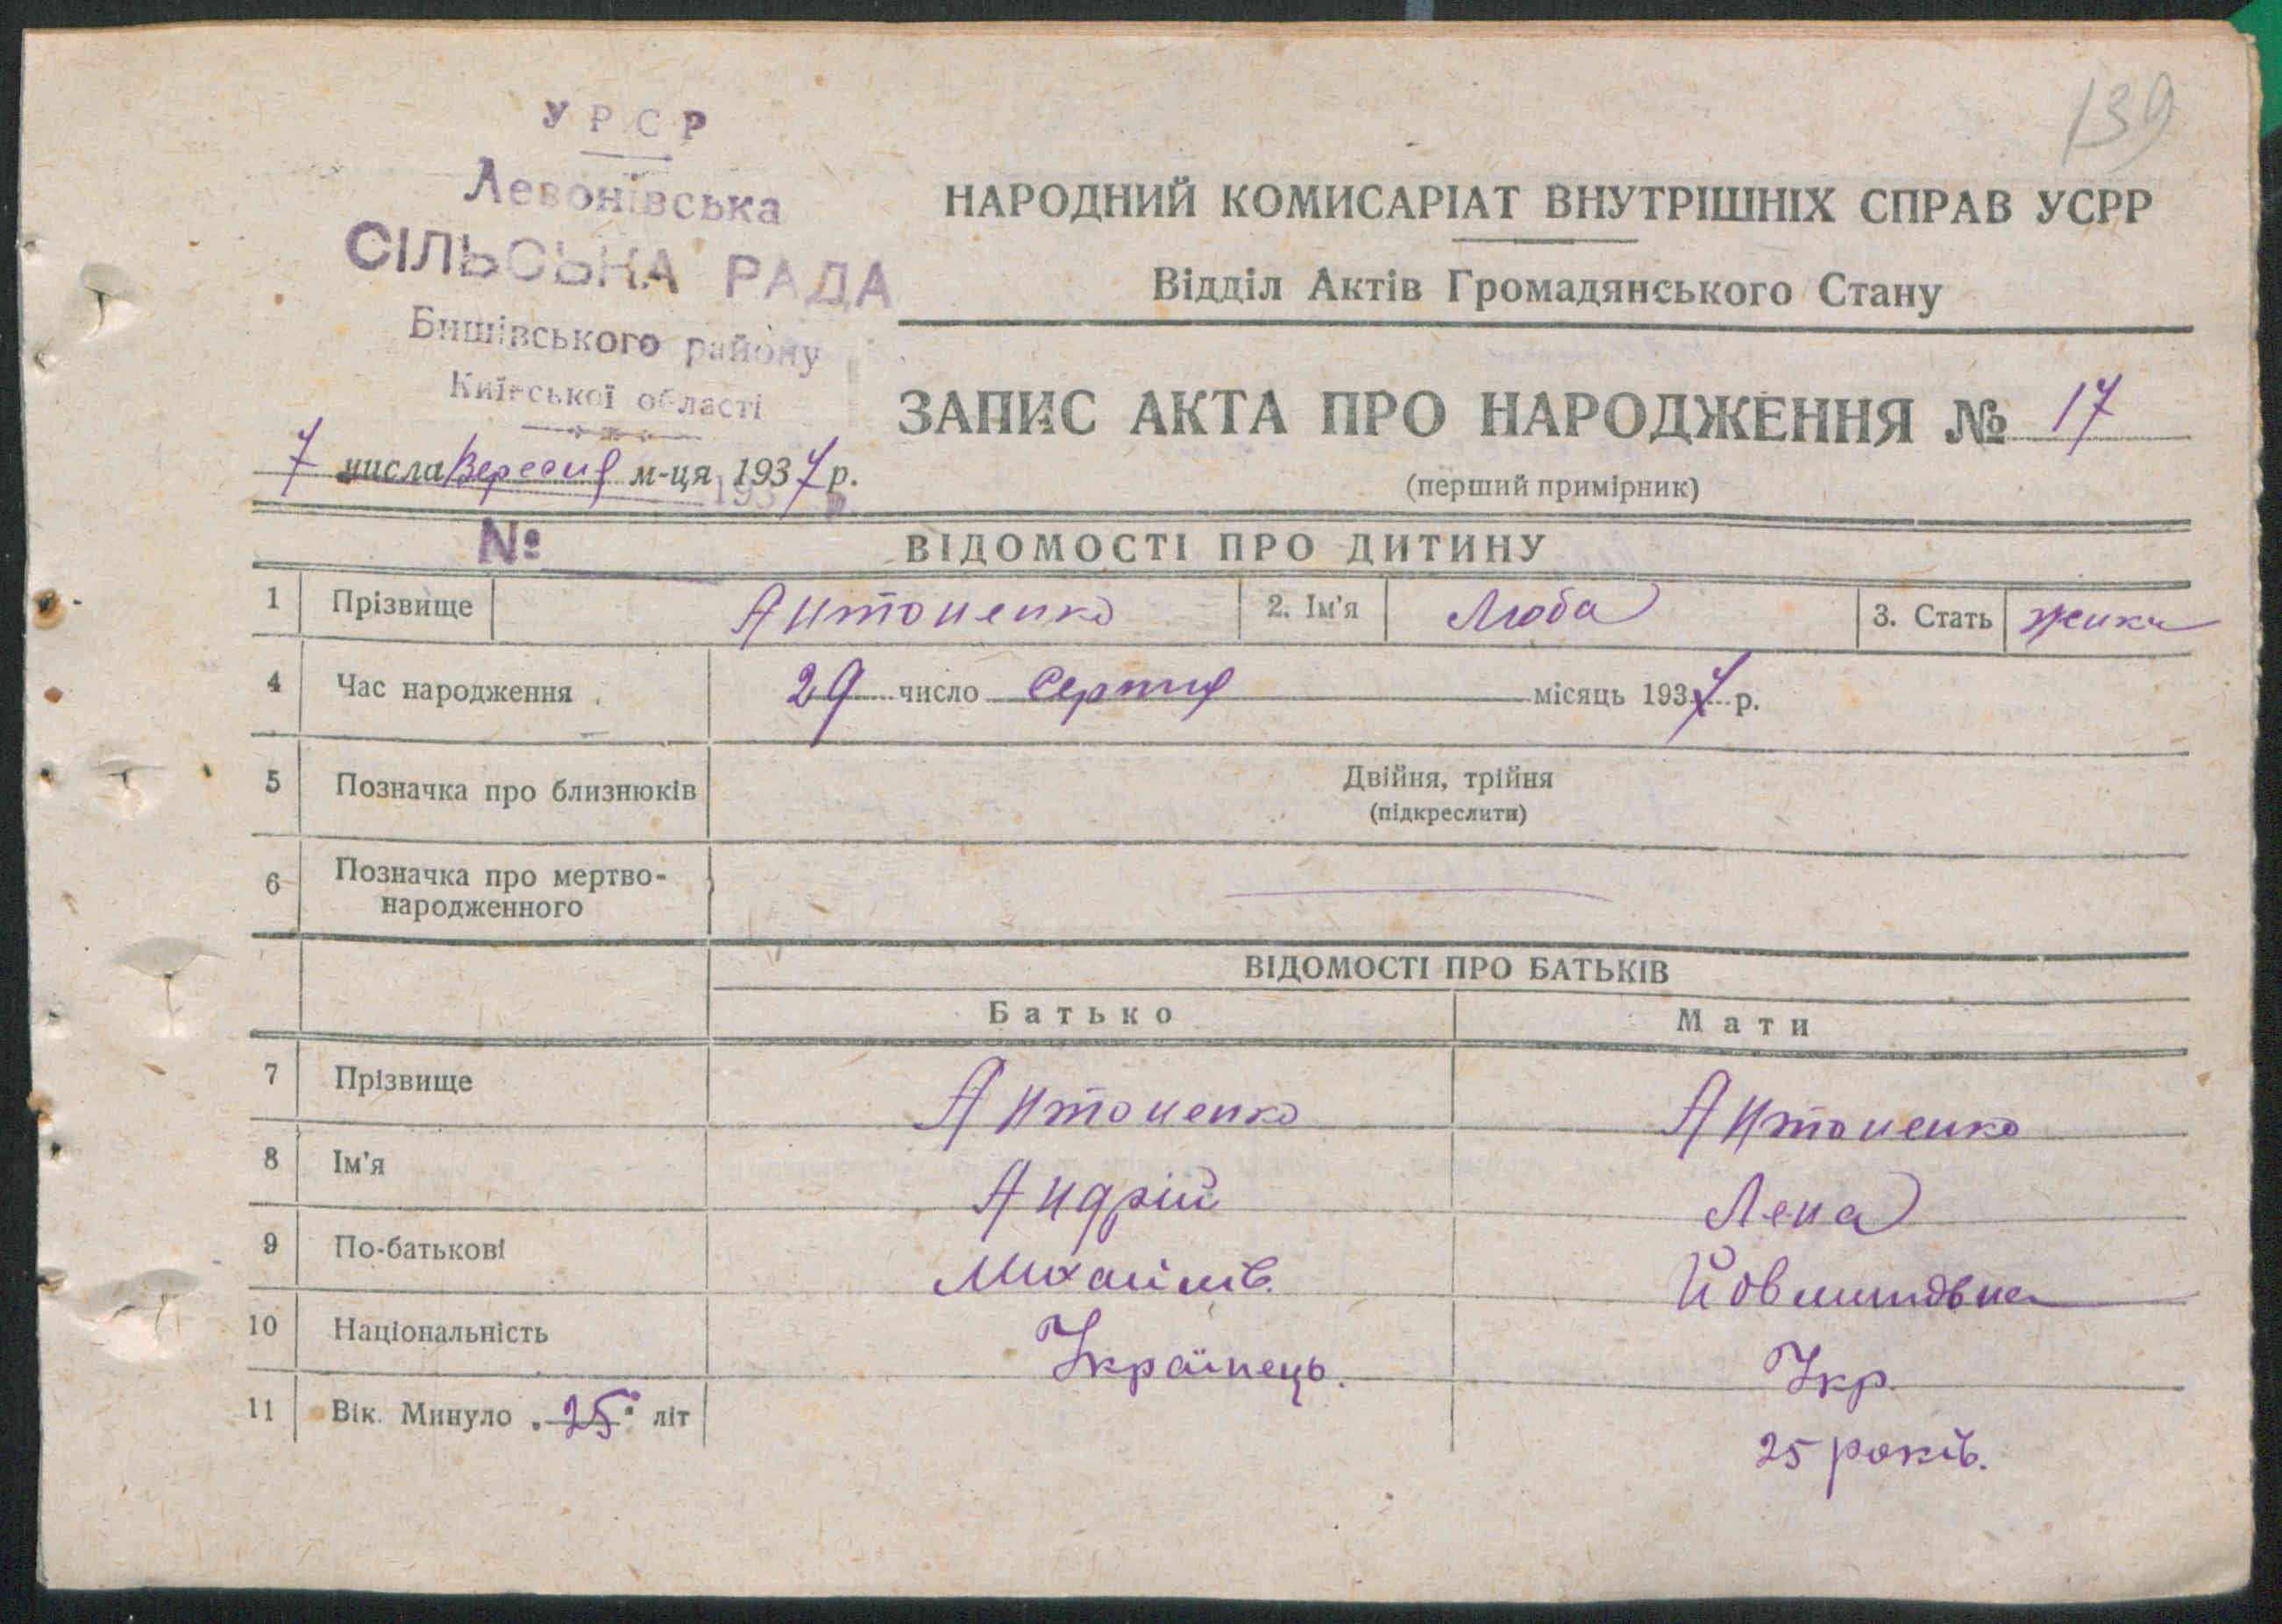 139
УРСР
Левонівська
СІЛЬСЬКА РАДА
Бишівського району
Київської області
7 числа Вересня м-ця 1937 р.
193 р.
№
НАРОДНИЙ КОМИСАРІАТ ВНУТРІШНІХ СПРАВ УСРР
Відділ Актів Громадянського Стану
ЗАПИС АКТА ПРО НАРОДЖЕННЯ № 17
(перший примірник)
ВІДОМОСТІ ПРО ДИТИНУ
1 Прізвище Антоненко 2. Ім'я Люба 3. Стать жінка
4 Час народження 29 число Серпня місяць 1937 р.
5 Позначка про близнюків Двійня, трійня
(підкреслити)
6 Позначка про мертво-
народженного
ВІДОМОСТІ ПРО БАТЬКІВ
Батько Мати
7 Прізвище Антоненко Антоненко
8 Ім'я Андрій Лена
9 По-батькові Михайлів.
10 Національність Українець. Укр.
11 Вік. Минуло „25" літ 25 років.